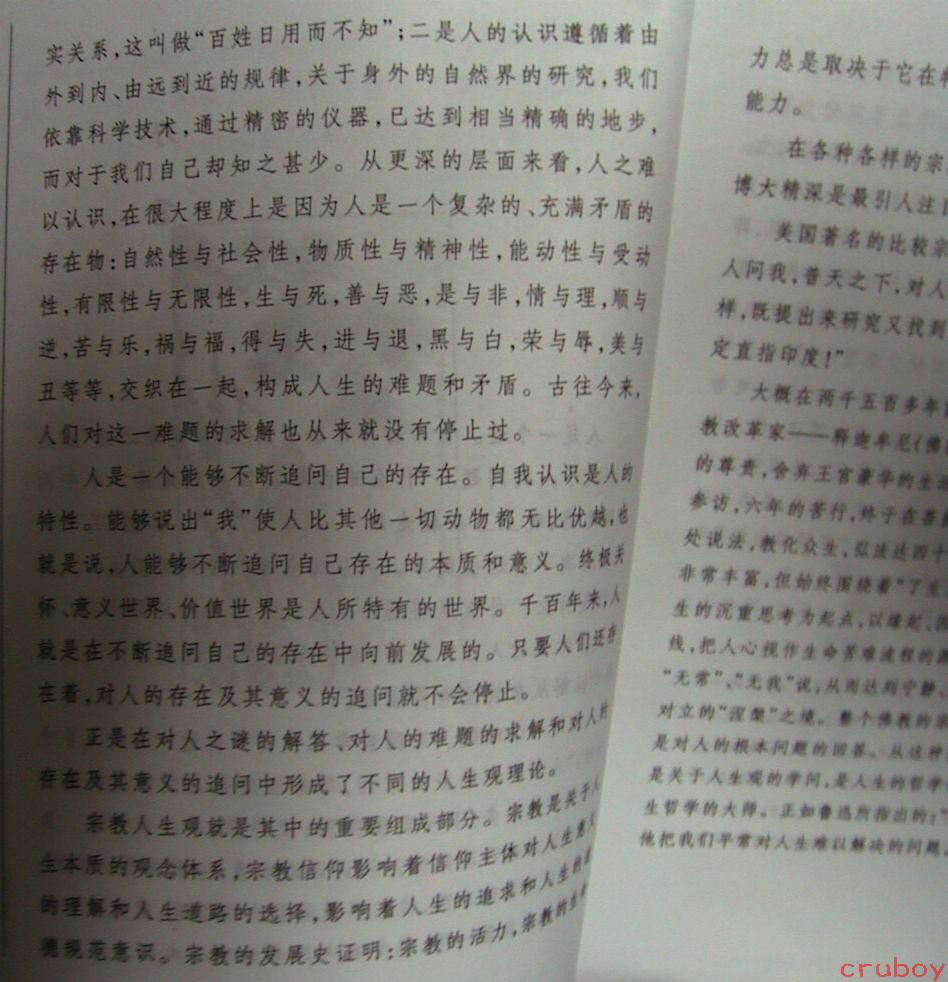 实关系,这叫做“百姓日用而不知”;二是人的认识遵循着由
外到内、由远到近的规律,关于身外的自然界的研究,我们
依靠科学技术,通过精密的仪器,已达到相当精确的地步,
而对于我们自己却知之甚少。从更深的层面来看,人之难
以认识,在很大程度上是因为人是一个复杂的、充满矛盾的
存在物:自然性与社会性,物质性与精神性,能动性与受动
性,有限性与无限性,生与死,善与恶,是与非,情与理,顺与
逆,苦与乐,祸与福,得与失,进与退,黑与白,荣与辱,美与
丑等等,交织在一起,构成人生的难题和矛盾。古往今来,
人们对这一难题的求解也从来就没有停止过。
人是一个能够不断追问自己的存在。自我认识是人的
特性。能够说出“我”使人比其他一切动物都无比优越,也
就是说,人能够不断追问自己存在的本质和意义。终极关
怀、意义世界、价值世界是人所特有的世界。千百年来,人
就是在不断追问自己的存在中向前发展的。只要人们还存
在着,对人的存在及其意义的追问就不会停止。
正是在对人之谜的解答、对人的难题的求解和对人的
存在及其意义的追问中形成了不同的人生观理论。
宗教人生观就是其中的重要组成部分。宗教是关于人
生本质的观念体系,宗教信仰影响着信仰主体对人生意义
的理解和人生道路的选择,影响着人生的追求和人生的
德规范意识。宗教的发展史证明:宗教的活力,宗教的
力总是取决于它在
能力。
在各种各样的宗
博大精深是最引人注目
美国著名的比较宗
人问我,普天之下,对人
样,既提出来研究又找到
定直指印度!”
大概在两千五百多年
教改革家——释迦牟尼(佛
的尊贵,舍弃王宫豪华的生活
参访,六年的苦行,终于在菩
处说法,教化众生,弘法达四十
非常丰富,但始终围绕着“了生
生的沉重思考为起点,以缘起、因
线,把人心视作生命苦难流程的
“无常”、“无我”说,从而达到宁静、
对立的“涅槃”之境。整个佛教的
是对人的根本问题的回答。从这种
是关于人生观的学问,是人生的哲学
生哲学的大师。正如鲁迅所指出的:“
他把我们平常对人生难以解决的问题,
cruboy